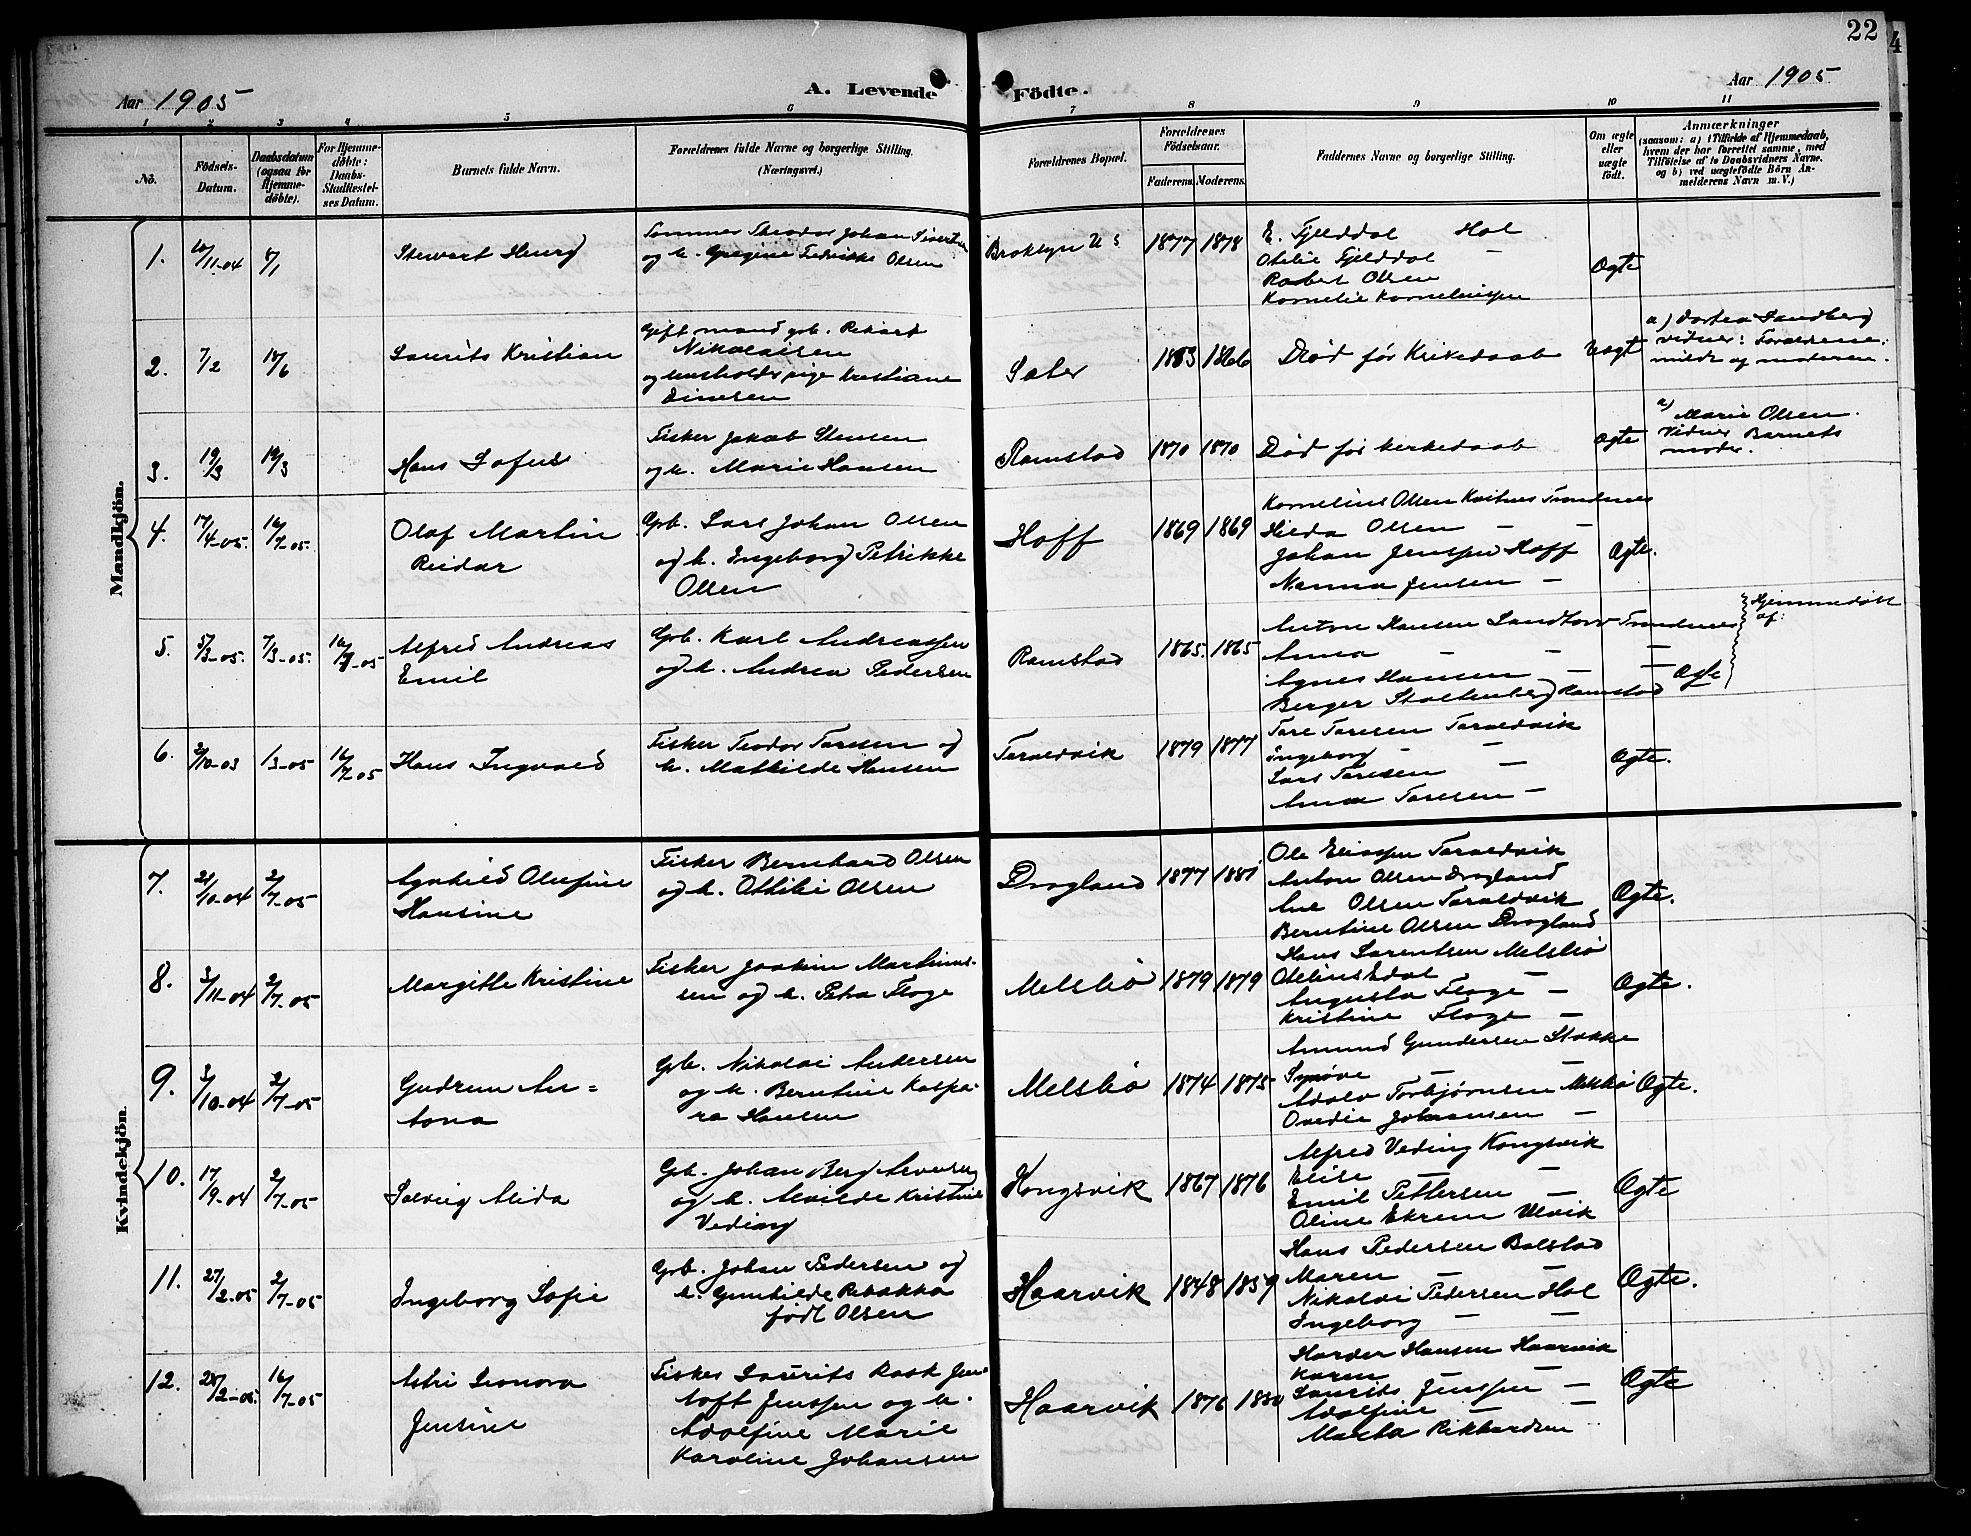 22
4
Aar 1905
A. Levende
Födte.
Aar 1905
1 2 3 4 5 6 7 8 9 10 11
No.
Födsels-
Datum.
Daabsdatum
(ogsaa for
Hjemme-
döbte).
For Hjemme-
döbte:
Daabs-
Stadfæstel-
ses Datum.
Barnets fulde Navn.
Forældrenes fulde Navne og borgerlige Stilling.
(Næringsvei.)
Forældrenes Bopæl.
Forældrenes
Födselsaar.
Faderens.
Moderens.
Faddernes Navne og borgerlige Stilling.
Om ægte
eller
uægte
födt.
Anmærkninger
(saasom: a) i Tilfælde af Hjemmedaab,
hvem der har forrettet samme, med
Tilföielse af to Daabsvidners Navne.
og b) ved uægtefödte Börn An-
melderens Navn m. V.)
Mandkjön.
1.
11-04
8/1
Stewart Henry
Tømmer Theodor Johan Sivertsen
og h. Gregine Fedrikke Olsen
Broklyn U S
1877 1878
E. Fjelddal Hol
Otelie Fjelddal —
Robert Olsen
Kornelie Korneliussen
Ægte
2.
7/2
18/6
Laurits Kristian
Gift mand grb. Rikard
Nikolaisen
og husholderpige Kristiane
Dinesen
Sæter
1853 1866
Död før Kirkedaab
Uægt
a) Dortea Sandberg
vidner: Forældrene
3.
19/3
19/3
Hans Sofus
Fisker Jakob Stensen
og h. Marie Hansen
Ramstad
1870 1870
Død før kirkedaab
Ægte
a) Marie Olsen.
Vidner Barnets
moder.
4.
17/4-05.
16/7-05
Olaf Martin
Reidar
Grb. Lars Johan Olsen
og h. Ingeborg Petrikke
Olsen
Hoff
1869 1869
Kornelius Olsen Kvitnes Trondenes
Hilda Olsen — —
Johan Jenssen Hoff
Nanna Jensen —
Ægte.
5.
5/3-05.
7/3-05.
16/7-05
Alfred Andreas
Emil
Grb. Karl Andreassen
og h. Andrea Pedersen
Ramstad
1865. 1865
Anton Hansen Sandtorv Trondenes
Anna — — —
Agnes Hansen — —
Berger Stoltenberg Ramstad
Ægte
Hjemmedøbt
af:
6.
2/10-03
1/3-05
16/7-05
Hans Ingvald
Fisker Teodor Toresen og
h. Mathilde Hansen
Toraldvik
1879 1877
Tore Toresen Toraldvik
Ingeborg — —
Lars Toresen —
Anna Toresen —
Ægte.
Kvindekjön.
7.
21/10-04
2/7-05
Agnhild Olufine
Hansine
Fisker Bernhard Olsen
og h. Othilie Olsen
Drogland
1877 1881
Ole Eliassen Toraldvik
Anton Olsen Drogland
Ane Olsen Toraldvik
Berntine Olsen Drogland
Ægte.
8.
3/11-04
2/7-05
Margitte Kristine
Fisker Joakim Martinus-
sen og h. Petra Floge
Melsbö
1879 1879
Hans Larentsen Melsbö
Augusta Floge —
Kristine Floge —
Ægte.
9.
3/10-04
2/7-05
Gudrun An=
tona
Grb. Nikolai Andersen
og h. Berntine Kaspa-
ra Hansen
Melsbö
1874 1875
Amund Gundersen Stokke
Synøve — —
Adolv Torbjørnsen Melsbö
Ovedie Johansen —
Ægte.
10.
17/9-04
2/7-05
Solveig Alida
Grb. Johan Berg
og h. Alvilde Kristine
Veding
Kongsvik
1867 1876
Alfred Veding Kongsvik
Elise —
Emil Pettersen —
Oline Ekrem Ulvik
Ægte
11.
27/2-05
2/7-05
Ingeborg Sofie
Grb. Johan Pedersen og
h. Gunhilde Rebakka
født Olsen
Haarvik
1848 1859
Hans Pedersen Bolstad
Maren — —
Nikolai Pedersen Hol
Ingeborg — —
Ægte.
12.
28/2-05.
16/7-05
Asbi Leonora
Jensine
Fisker Laurits Rask Jen-
toft Jenssen og h.
Adolfine Marie
Karoline Johansen
Haarvik
1876 1880
Hardor Hansen Haarvik
Karen —
Laurits Jenssen —
Adolfine — —
Marta Rikhardsen
Ægte